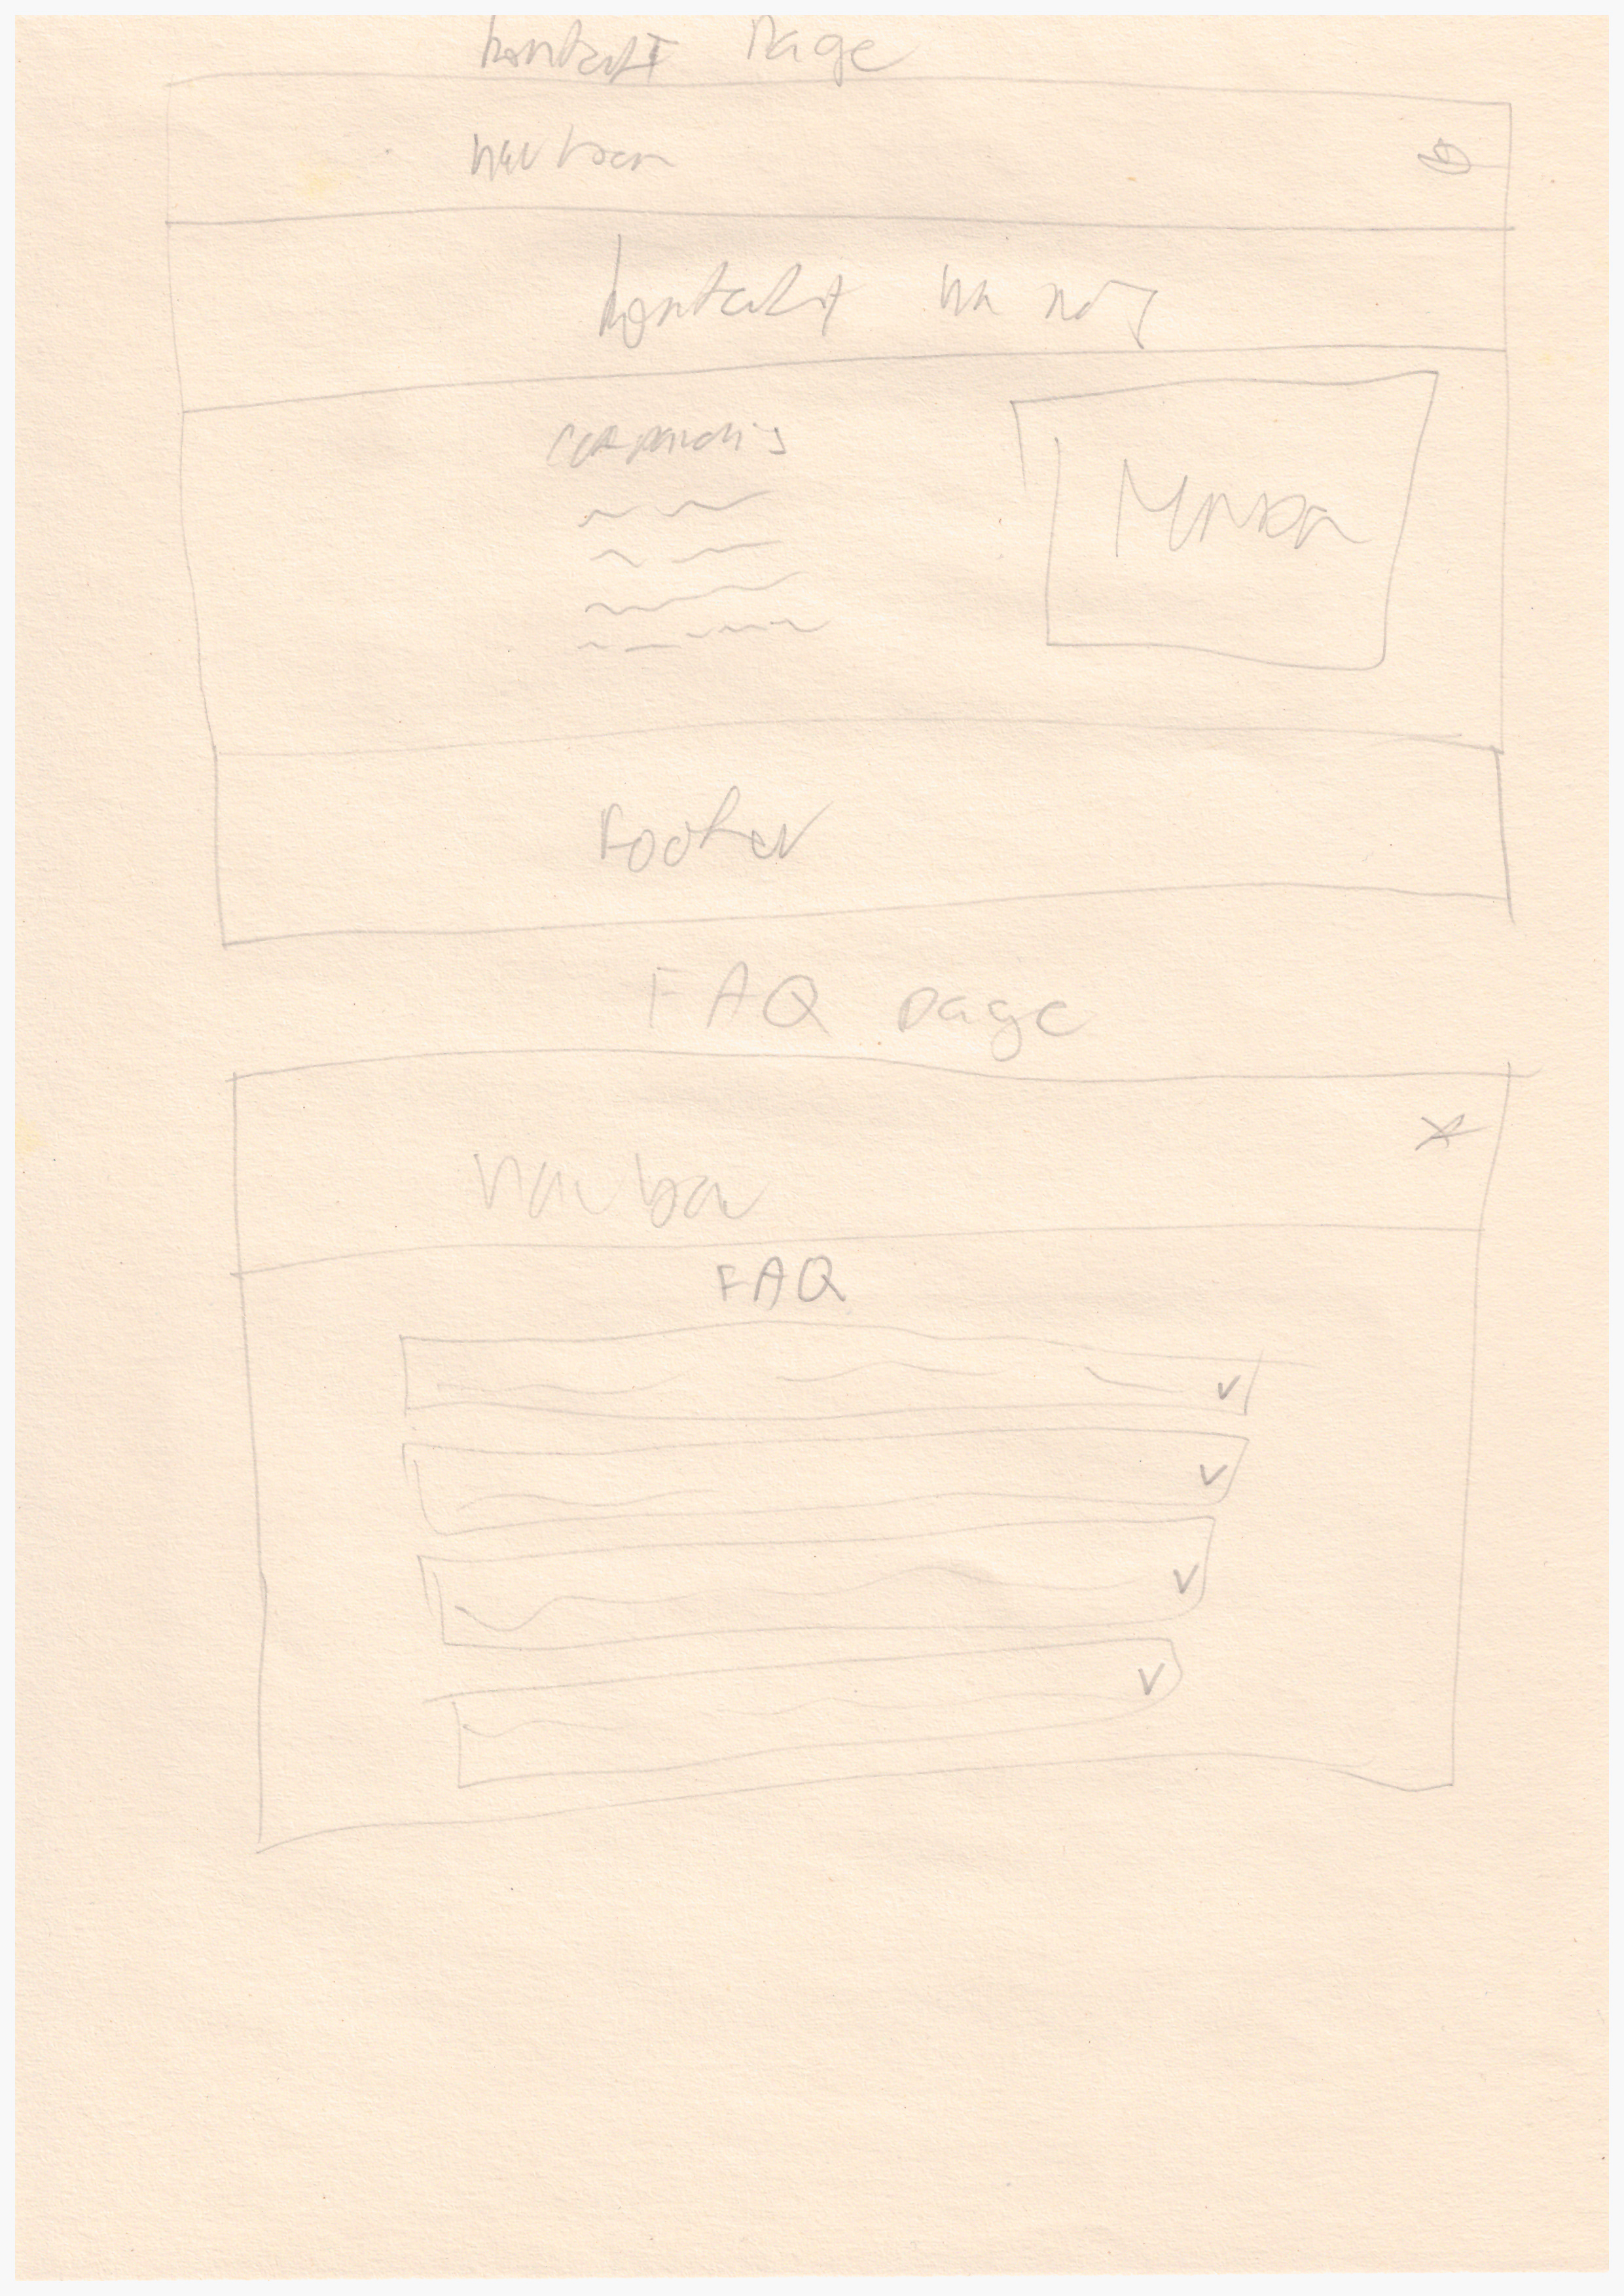 kontakt page
navbar
kontakt na nás
Mapa
Footer
FAQ page
navbar
FAQ